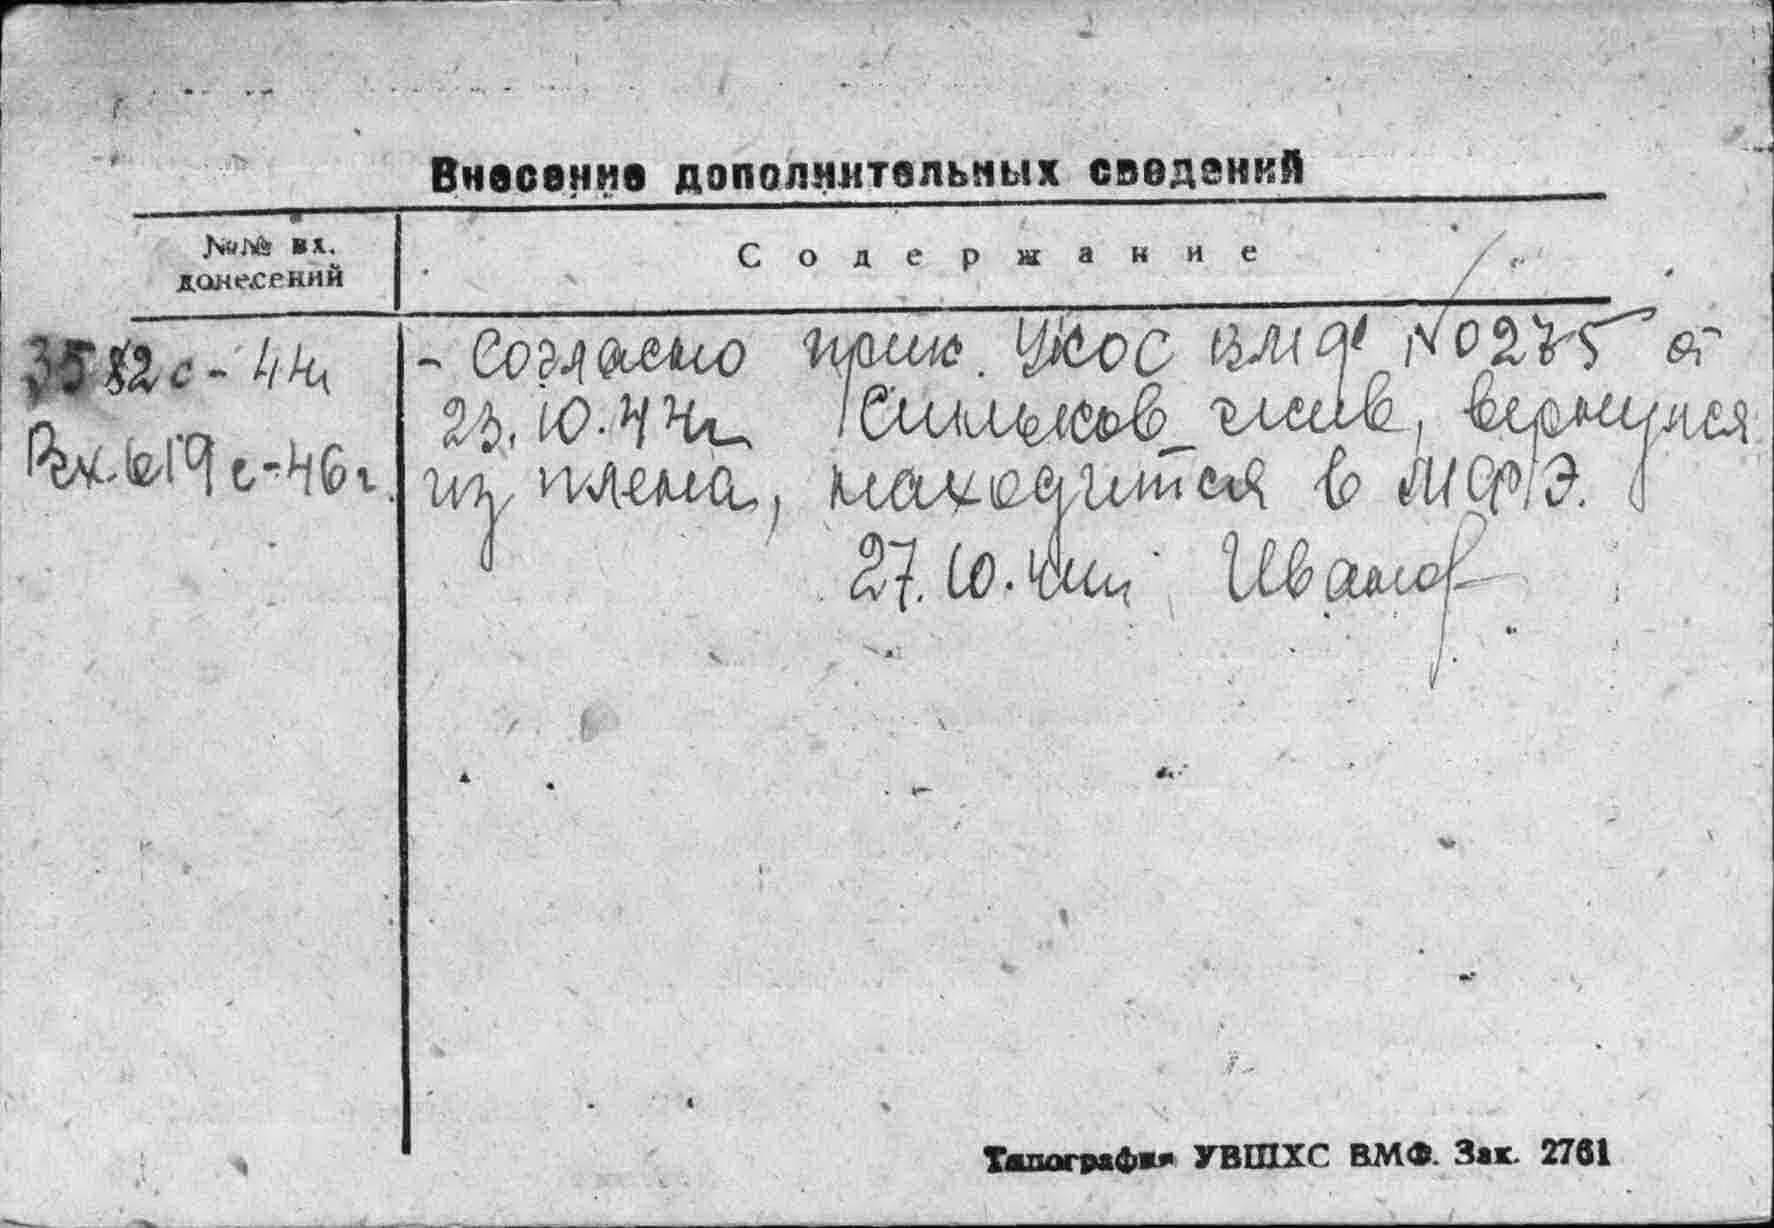 Внесение дополнительных сведений
№№ вх.
донесений
Содержание
3582с-44г
- Согласно прик. УКОС ВМФ №0275 от
23.10.44г Синьков жив, вернулся
Вх.619с-46г.
из плена, находится в МФЭ.
27.10.44г Иванов
Типография УВШХС ВМФ. Зак. 2761